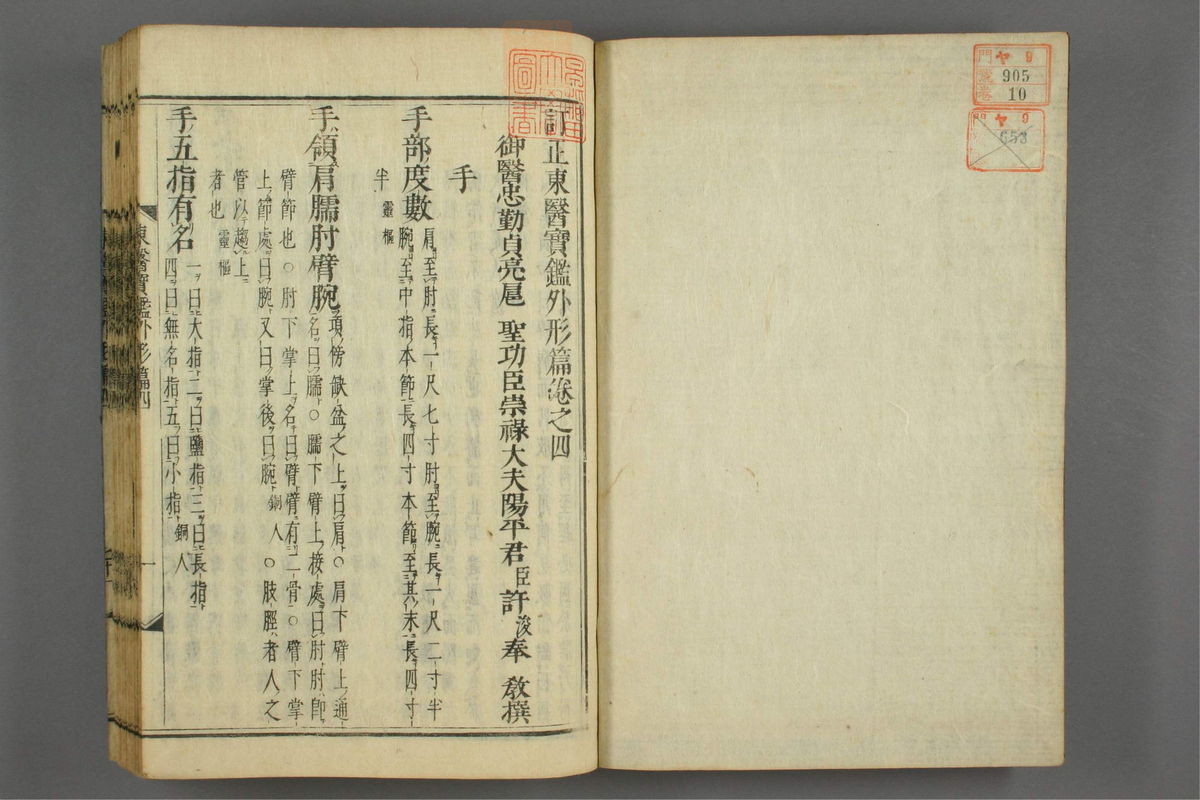 訂正東醫寶鑑外形篇卷之四
御醫忠勤貞亮扈 聖功臣崇祿大夫陽平君臣許浚奉 教撰
手
手部度數
肩至肘長一尺七寸肘至腕長一尺二寸半
腕至中指本節長四寸本節至其末長四寸
半靈樞
手領肩臑肘臂腕
項傍缺盆之上曰肩○肩下臂上通
名曰臑○臑下臂上接處曰肘肘卽
臂節也○肘下掌上名曰臂臂有二骨○臂下掌
上節處曰腕又曰掌後曰腕銅人○肢脛者人之
管以趨上
者也靈樞
手五指有名
一曰大指二曰鹽指三曰長指
四曰無名指五曰小指銅人
東醫寶鑑外形篇四
一
圖書
門 ヤ9
號 905
卷 10
門 ヤ9
653